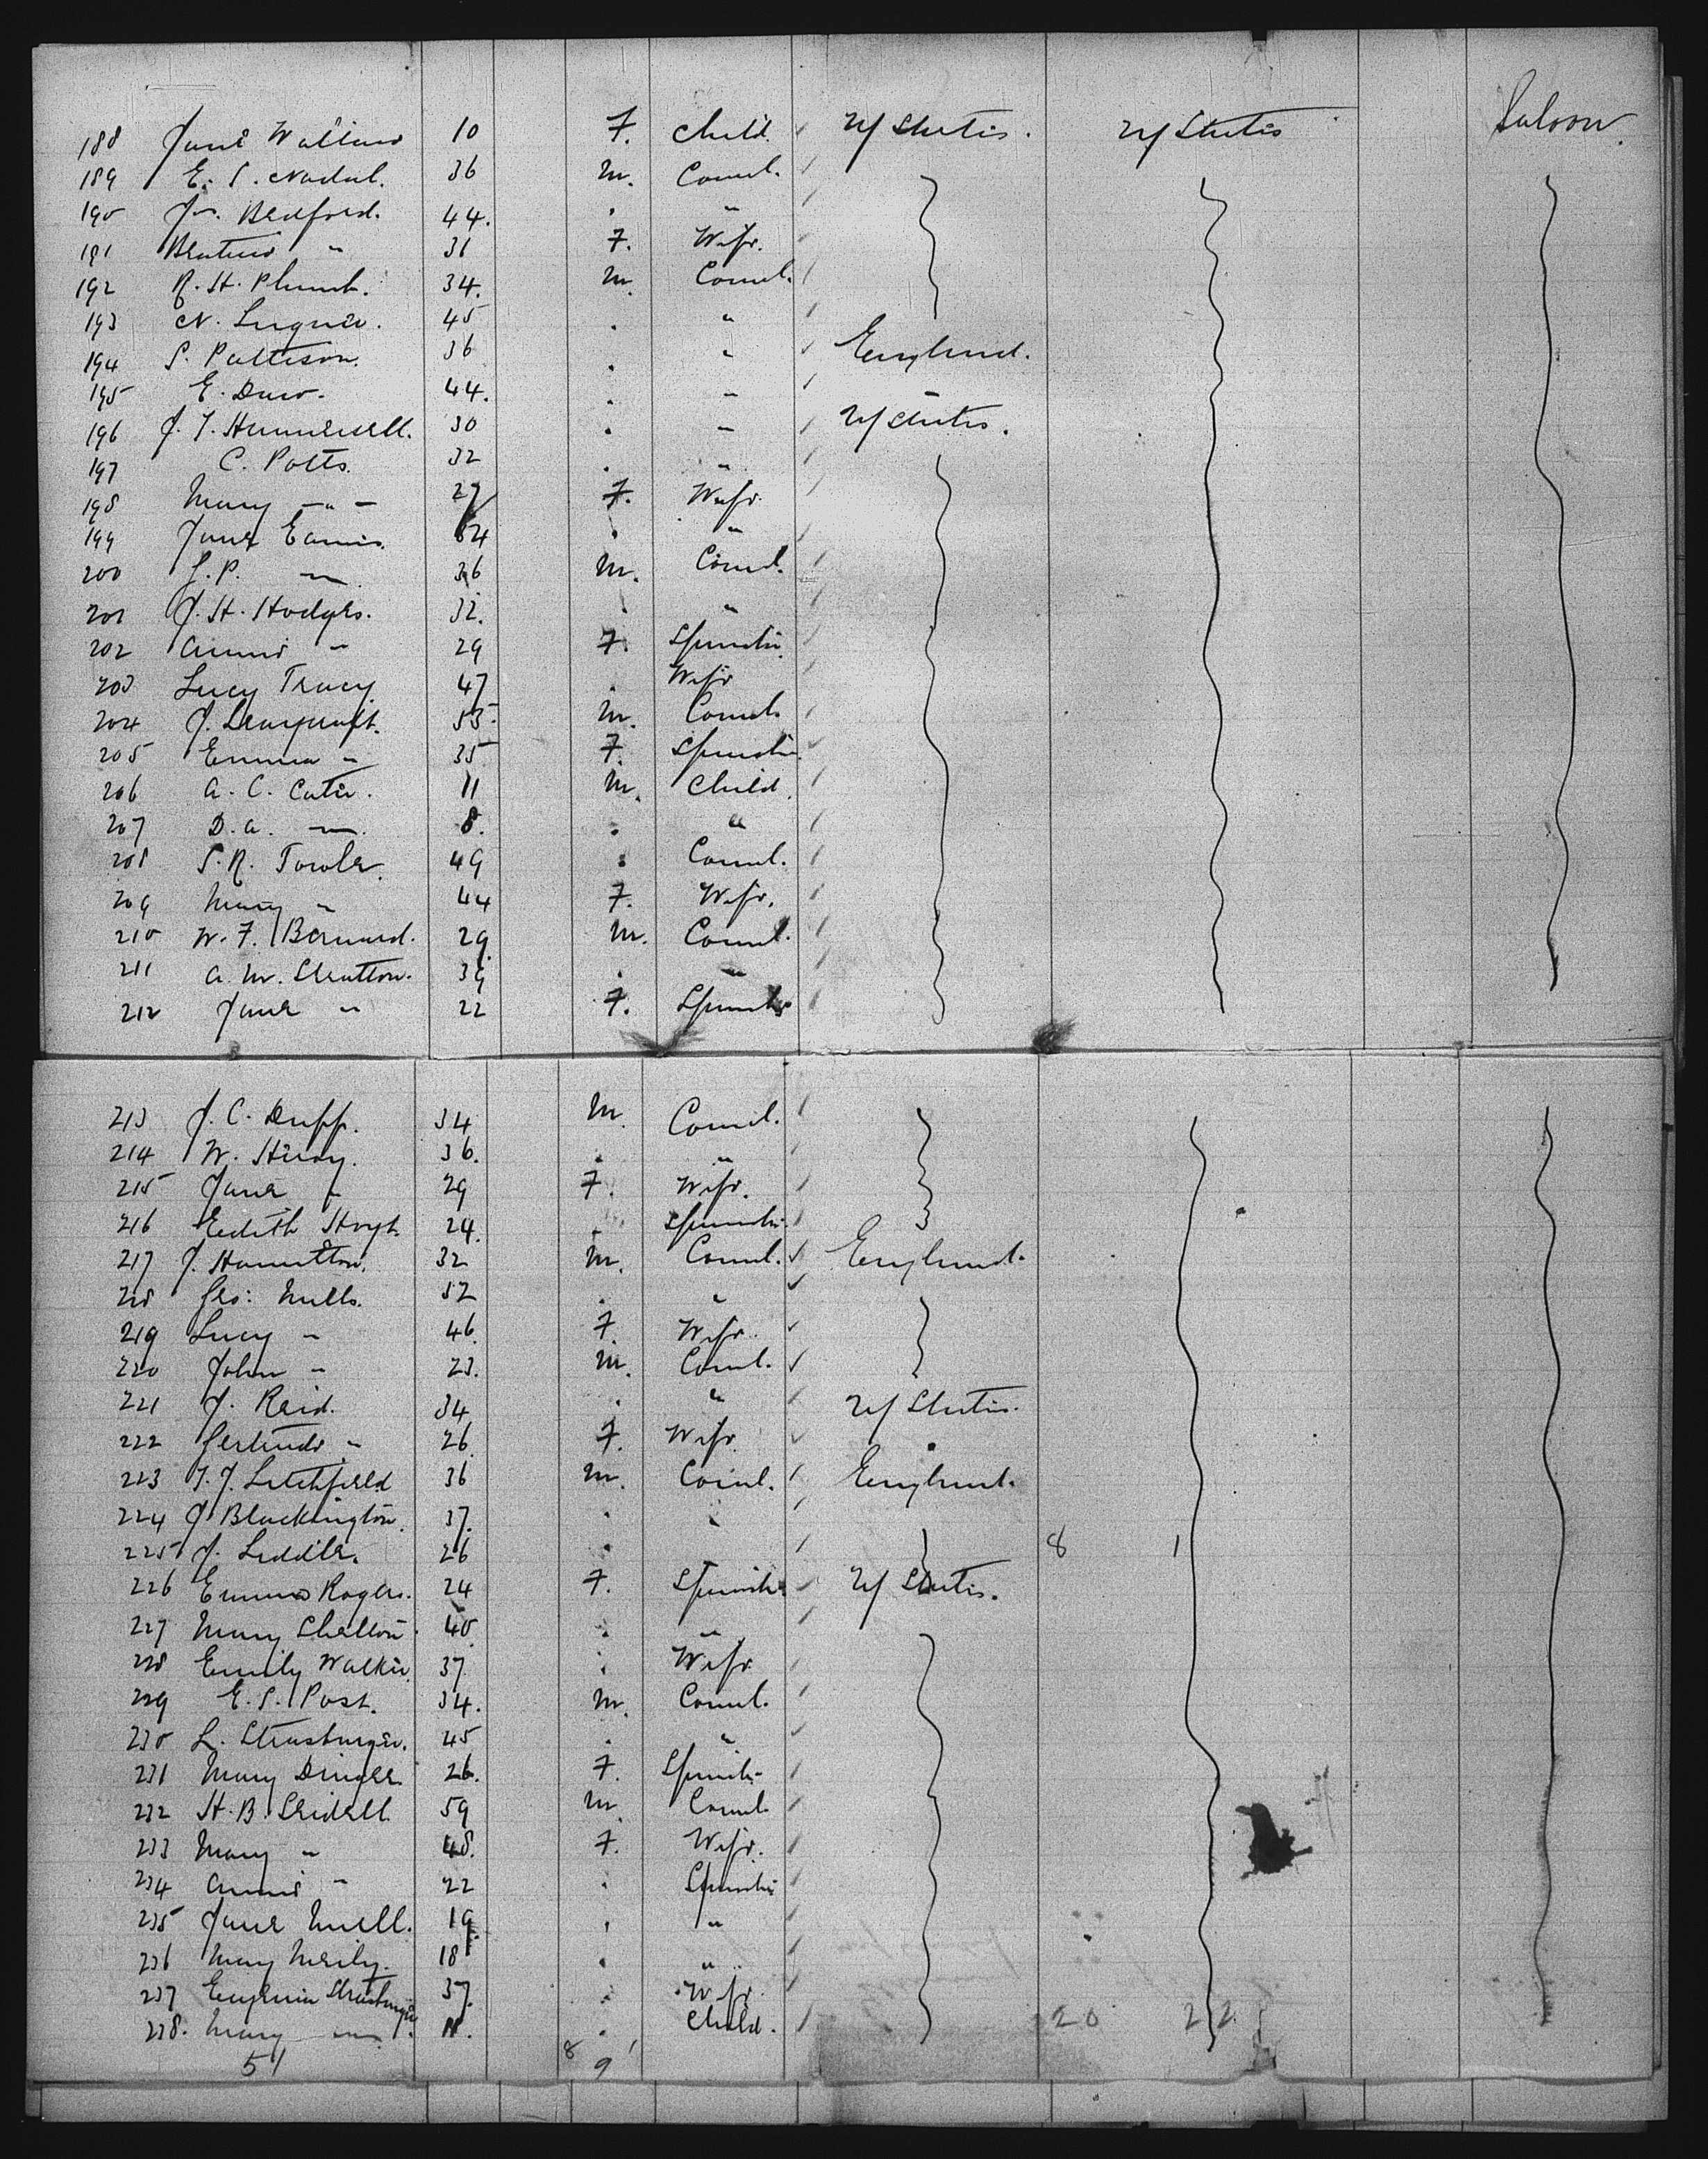 188 Jane 10 F. Child. U/States. U/States Saloon.
189 E. S. Nadal. 36 M. Coml.
190 Js. Bedford. 44. . "
191 " 31 F. Wife.
192 R. H. Plumb. 34. M. Coml.
193 N. 45 . "
194 S. Pattison. 36 . " England.
195 E. 44. . "
196 J. T. Hunnewell. 30 . " U/States.
197 C. Potts. 32 . "
198 Mary " 27 F. Wife.
199 Jane Eamis. 34 . "
200 J. P. " 36 M. Coml.
201 J. H. Hodges. 32. . "
202 Annie " 29 F. Spinster.
203 Lucy Tracy 47 . Wife
204 J. 55. M. Coml.
205 Emma " 35 F. Spinster.
206 A. C. 11 M. Child.
207 D. A. " 8. . "
208 S. R. Towle. 49 . Coml.
209 Mary " 44 F. Wife.
210 W. F. Barnard. 29. M. Coml.
211 A. M. Stratton. 39 . "
212 Jane " 22 F. Spinster
213 J. C. Duff. 34 M. Coml.
214 W. 36. . "
215 Jane " 29 F. Wife.
216 Edith Hoyt. 24. . Spinster.
217 J. Hamilton. 32 M. Coml. England.
218 Geo: Mills. 52 . "
219 Lucy " 46. F. Wife.
220 John " 23. M. Coml.
221 J. Reid. 34 . " U/States.
222 Gertrude " 26. F. Wife.
223 T. J. Litchfield 36 M. Coml. England.
224 J Blackington. 37. . "
225 J. Liddle. 26 . 8 1
226 Emma Rogers. 24 F. Spinster U/States.
227 Mary 40. . "
228 Emily Walker. 37. . Wife
229 E. S. Post. 34. M. Coml.
230 L. Strasburger. 45 . "
231 Mary 26. F. Spinster
232 H. B. 59 M. Coml.
233 Mary " 48. F. Wife.
234 Annie " 22 . Spinster
235 Jane 19. . "
236 Mary 18 . "
237 Eugenia Strasburger 37. . Wife.
238. Mary " 11. . Child. 20 22
51 8 9 1